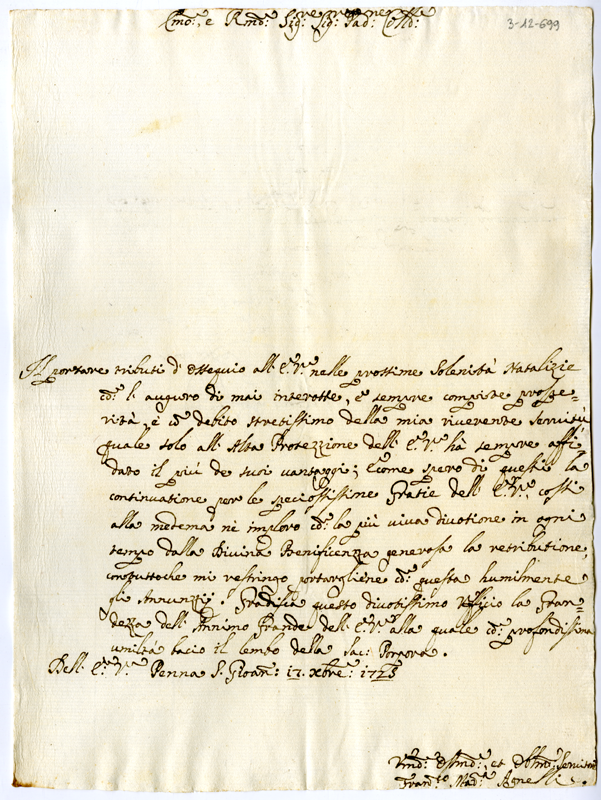 Emo:, e Rmo: Sig: Sig: Pad: Coll:
3-12-699
Il portare tributi d'ossequio all'E.V. nelle prossime Solenità Natalizie
co: l'auguro di mai interotte, e sempre compite prospe=
rità, è co: debito stretissimo della mia riverente servitù
quale solo all'Alta Protezzione dell'E.V. hà sempre affi
dato il più de suoi vantaggi; E come spero di questi la
continuatione per le speciosissime Gratie dell'E.V., cossì
alla medema nè imploro co: la più viva divotione in ogni
tempo dalla Divina Beneficenza generosa la retributione,
contuttoche mi restringo portargliene co: questa humilmente
gli Annunzij. Gradisca questo divotissimo Ufficio la Gran=
dezza dell'Annimo Grande dell'E.V. alla quale co: profondissima
umiltà bacio il lembo della Sac: Porpora.
Dell'E.V. Penna S. Gioan: 17. Xbre: 1723
Umo: Dmo:, et Obmo: Servitore
Fran.co Mar: Agnelli